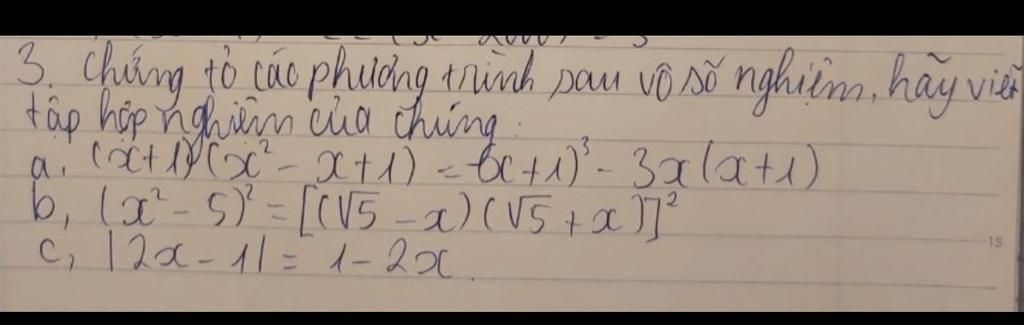 3. Chứng tỏ các phương trình sau vô số nghiệm, hãy viết
tập hợp nghiệm của chúng:
a, (x+1)(x² - x + 1) = (x+1)³ - 3x(x+1)
b, (x² - 5)² = [(√5 - x)(√5 + x)]²
c, |2x - 1| = 1 - 2x
15